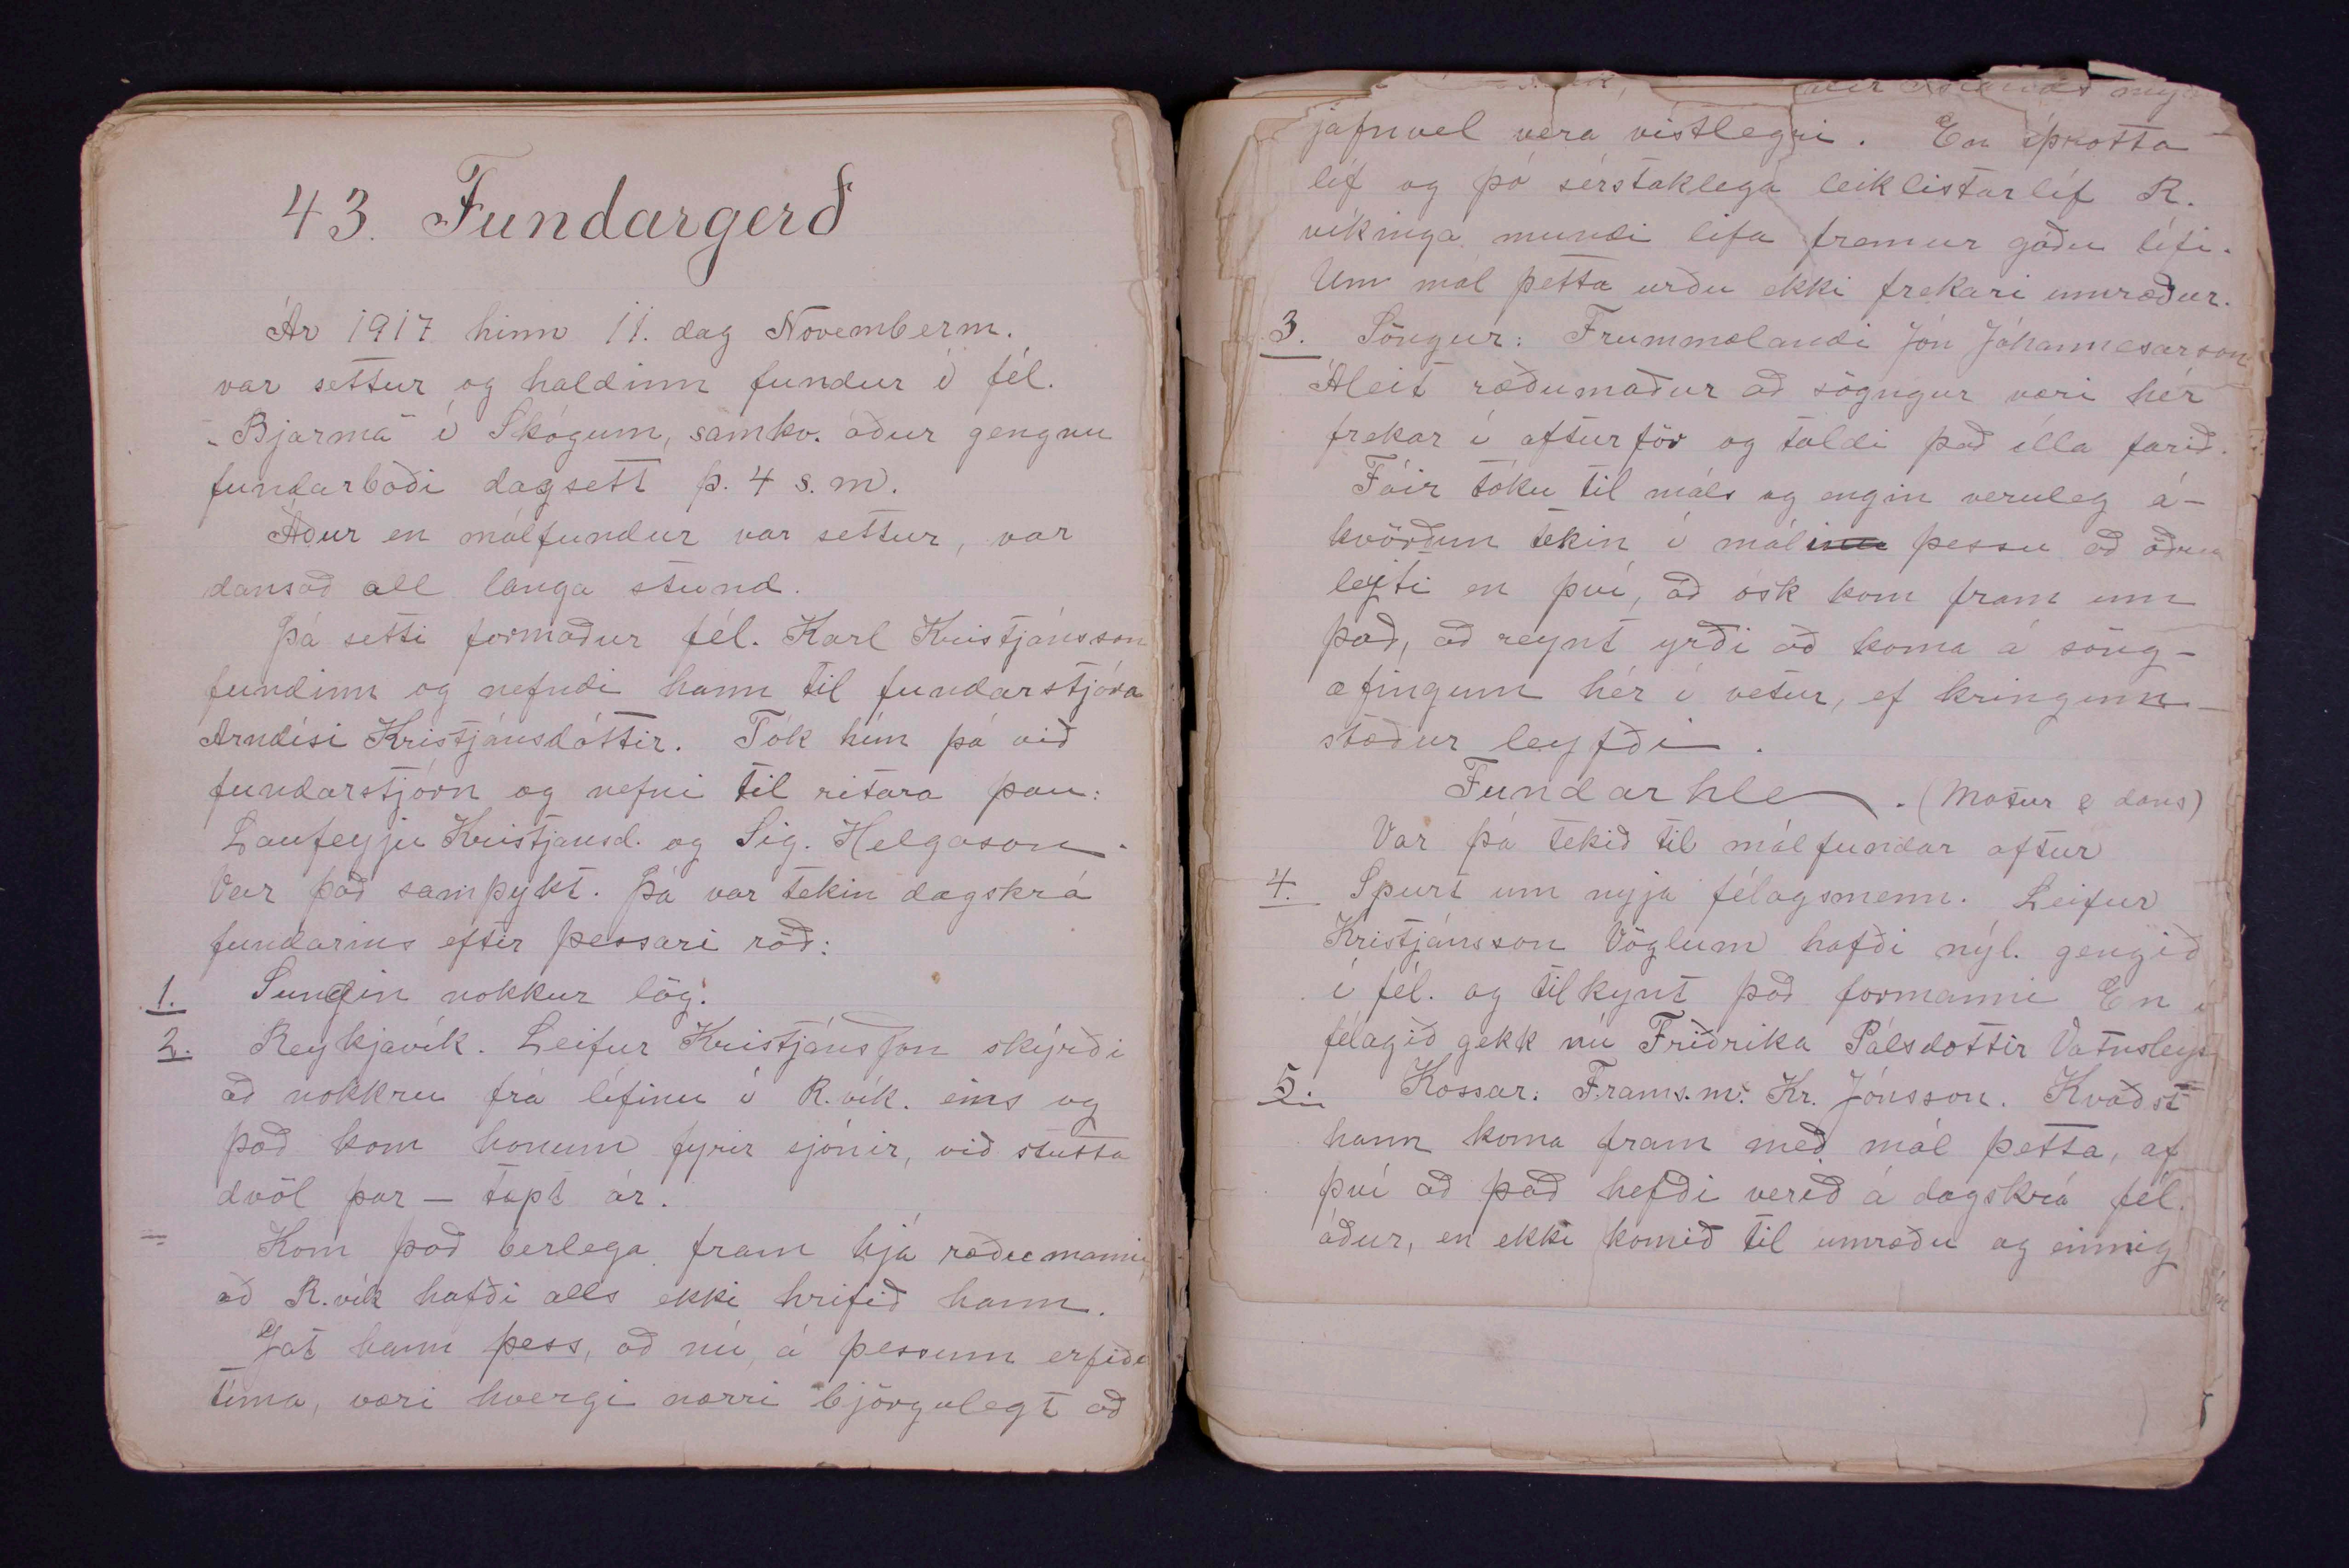 43. Fundargerð
Ár 1917 hinn 11. dag Novemberm.
var settur og haldinn fundur í fél.
„Bjarma" í Skógum, samkv. áður gengnu
fundarboði dagsett þ. 4 s. m.
Áður en málfundur var settur, var
dansað all langa stund.
Þá setti formaður fél. Karl Kristjánsson
fundinn og nefndi hann til fundarstjóra
Arndísi Kristjánsdóttir. Tók hún þá við
fundarstjórn og nefni til ritara þau:
Laufeyju Kristjansd. og Sig. Helgason.
Var það samþykt. Þá var tekin dagskrá
fundarins eftir þessari röð:
1. Sungin nokkur lög.
2. Reykjavík. Leifur Kristjánsson skýrði
að nokkru frá lífinu í R.vík. eins og
það kom honum fyrir sjónir, við stutta
dvöl þar – tæpt ár.
Kom það berlega fram hjá ræðumanni,
að R.vík hafði alls ekki hrifið hann.
Gat hann þess, að nú, á þessum erfiða
tíma, væri hvergi nærri björgulegt að
jafnvel vera vistlegri. En íþrotta
líf og þó sérstaklega leiklistarlíf R.
víkinga mundi lifa fremur góðu lífi.
Um mál þetta urðu ekki frekari umræður.
3. Söngur: Frummælandi Jón Jóhannesarson
Áleit ræðumaður að sögngur væri hér
frekar í afturför og taldi það illa farið.
Fáir tóku til máls og engin veruleg á-
kvörðun tekin í málinu þessu að öðru
leyti en því, að ósk kom fram um
það, að reynt yrði að koma á söng-
æfingum hér í vetur, ef kringum-
stæður leyfði.
Fundarhle. (Matur & dans)
Var þá tekið til málfundar aftur
4. Spurt um nyja félagsmenn. Leifur
Kristjánsson Vöglum hafði nýl. gengið
í fél. og tilkynt það formanni En í
félagið gekk nú Friðrika Pálsdottir Vatnsleys
5. Kossar: Frams.m: Kr. Jónsson. Kvaðst
hann koma fram með mál þetta, af
því að það hefði verið á dagskrá fél.
áður, en ekki komið til umræðu og einnig